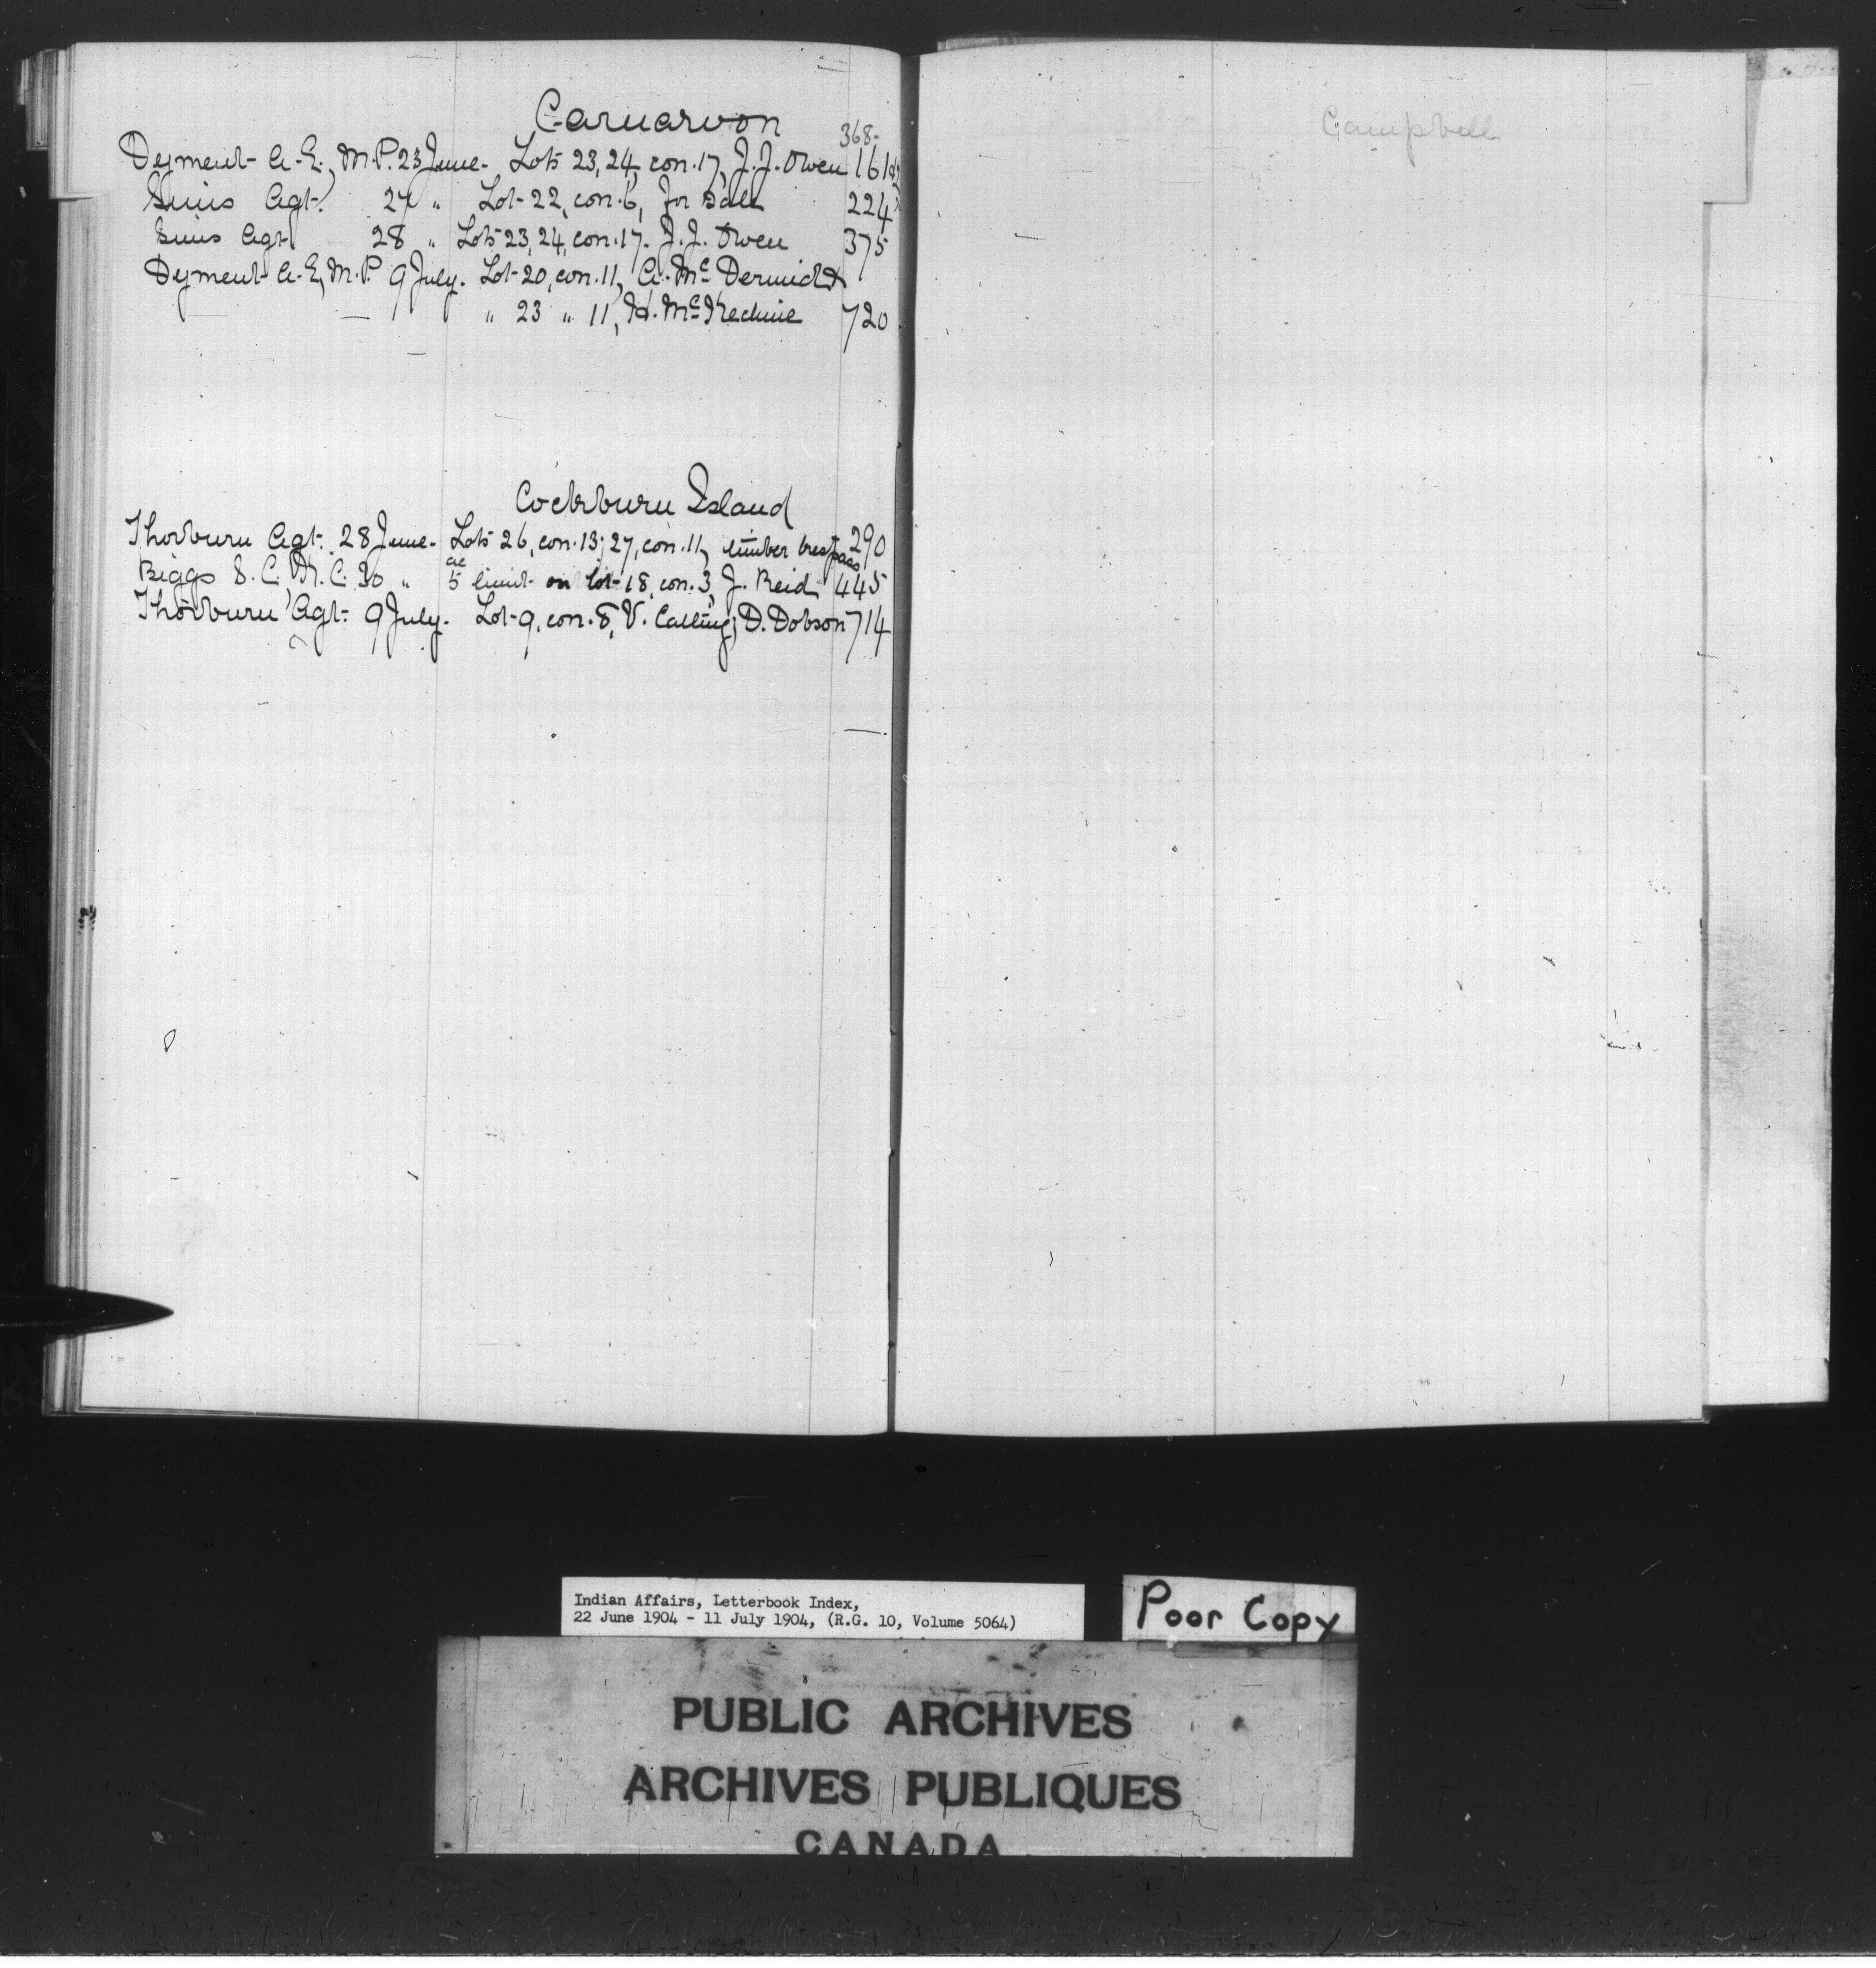 Carnarvon
368-
Dyment A. E., M.P. 23 June. Lots 23, 24, con. 17, J. J. Owen 161
Sims Agt. 27 " Lot 22, con. 6, for sale 224
Sims Agt. 28 " Lots 23, 24, con. 17. J. J. Owen 375
Dyment A. E, M.P. 9 July. Lot 20, con. 11, A. McDermid &
" 23 " 11, H. McKechnie 720
Cockburn Island
Thorburn Agt. 28 June. Lots 26, con. 13; 27, con. 11, timber trespass 290
Biggs S. C., K. C. 30 " ac 5 limit on lot 18, con. 3, J. Reid 445
Thorburn Agt. 9 July. Lot 9, con. 8, V. D. Dobson 714
Campbell
Indian Affairs, Letterbook Index,
22 June 1904 - 11 July 1904, (R.G. 10, Volume 5064)
Poor Copy
PUBLIC ARCHIVES
ARCHIVES PUBLIQUES
CANADA